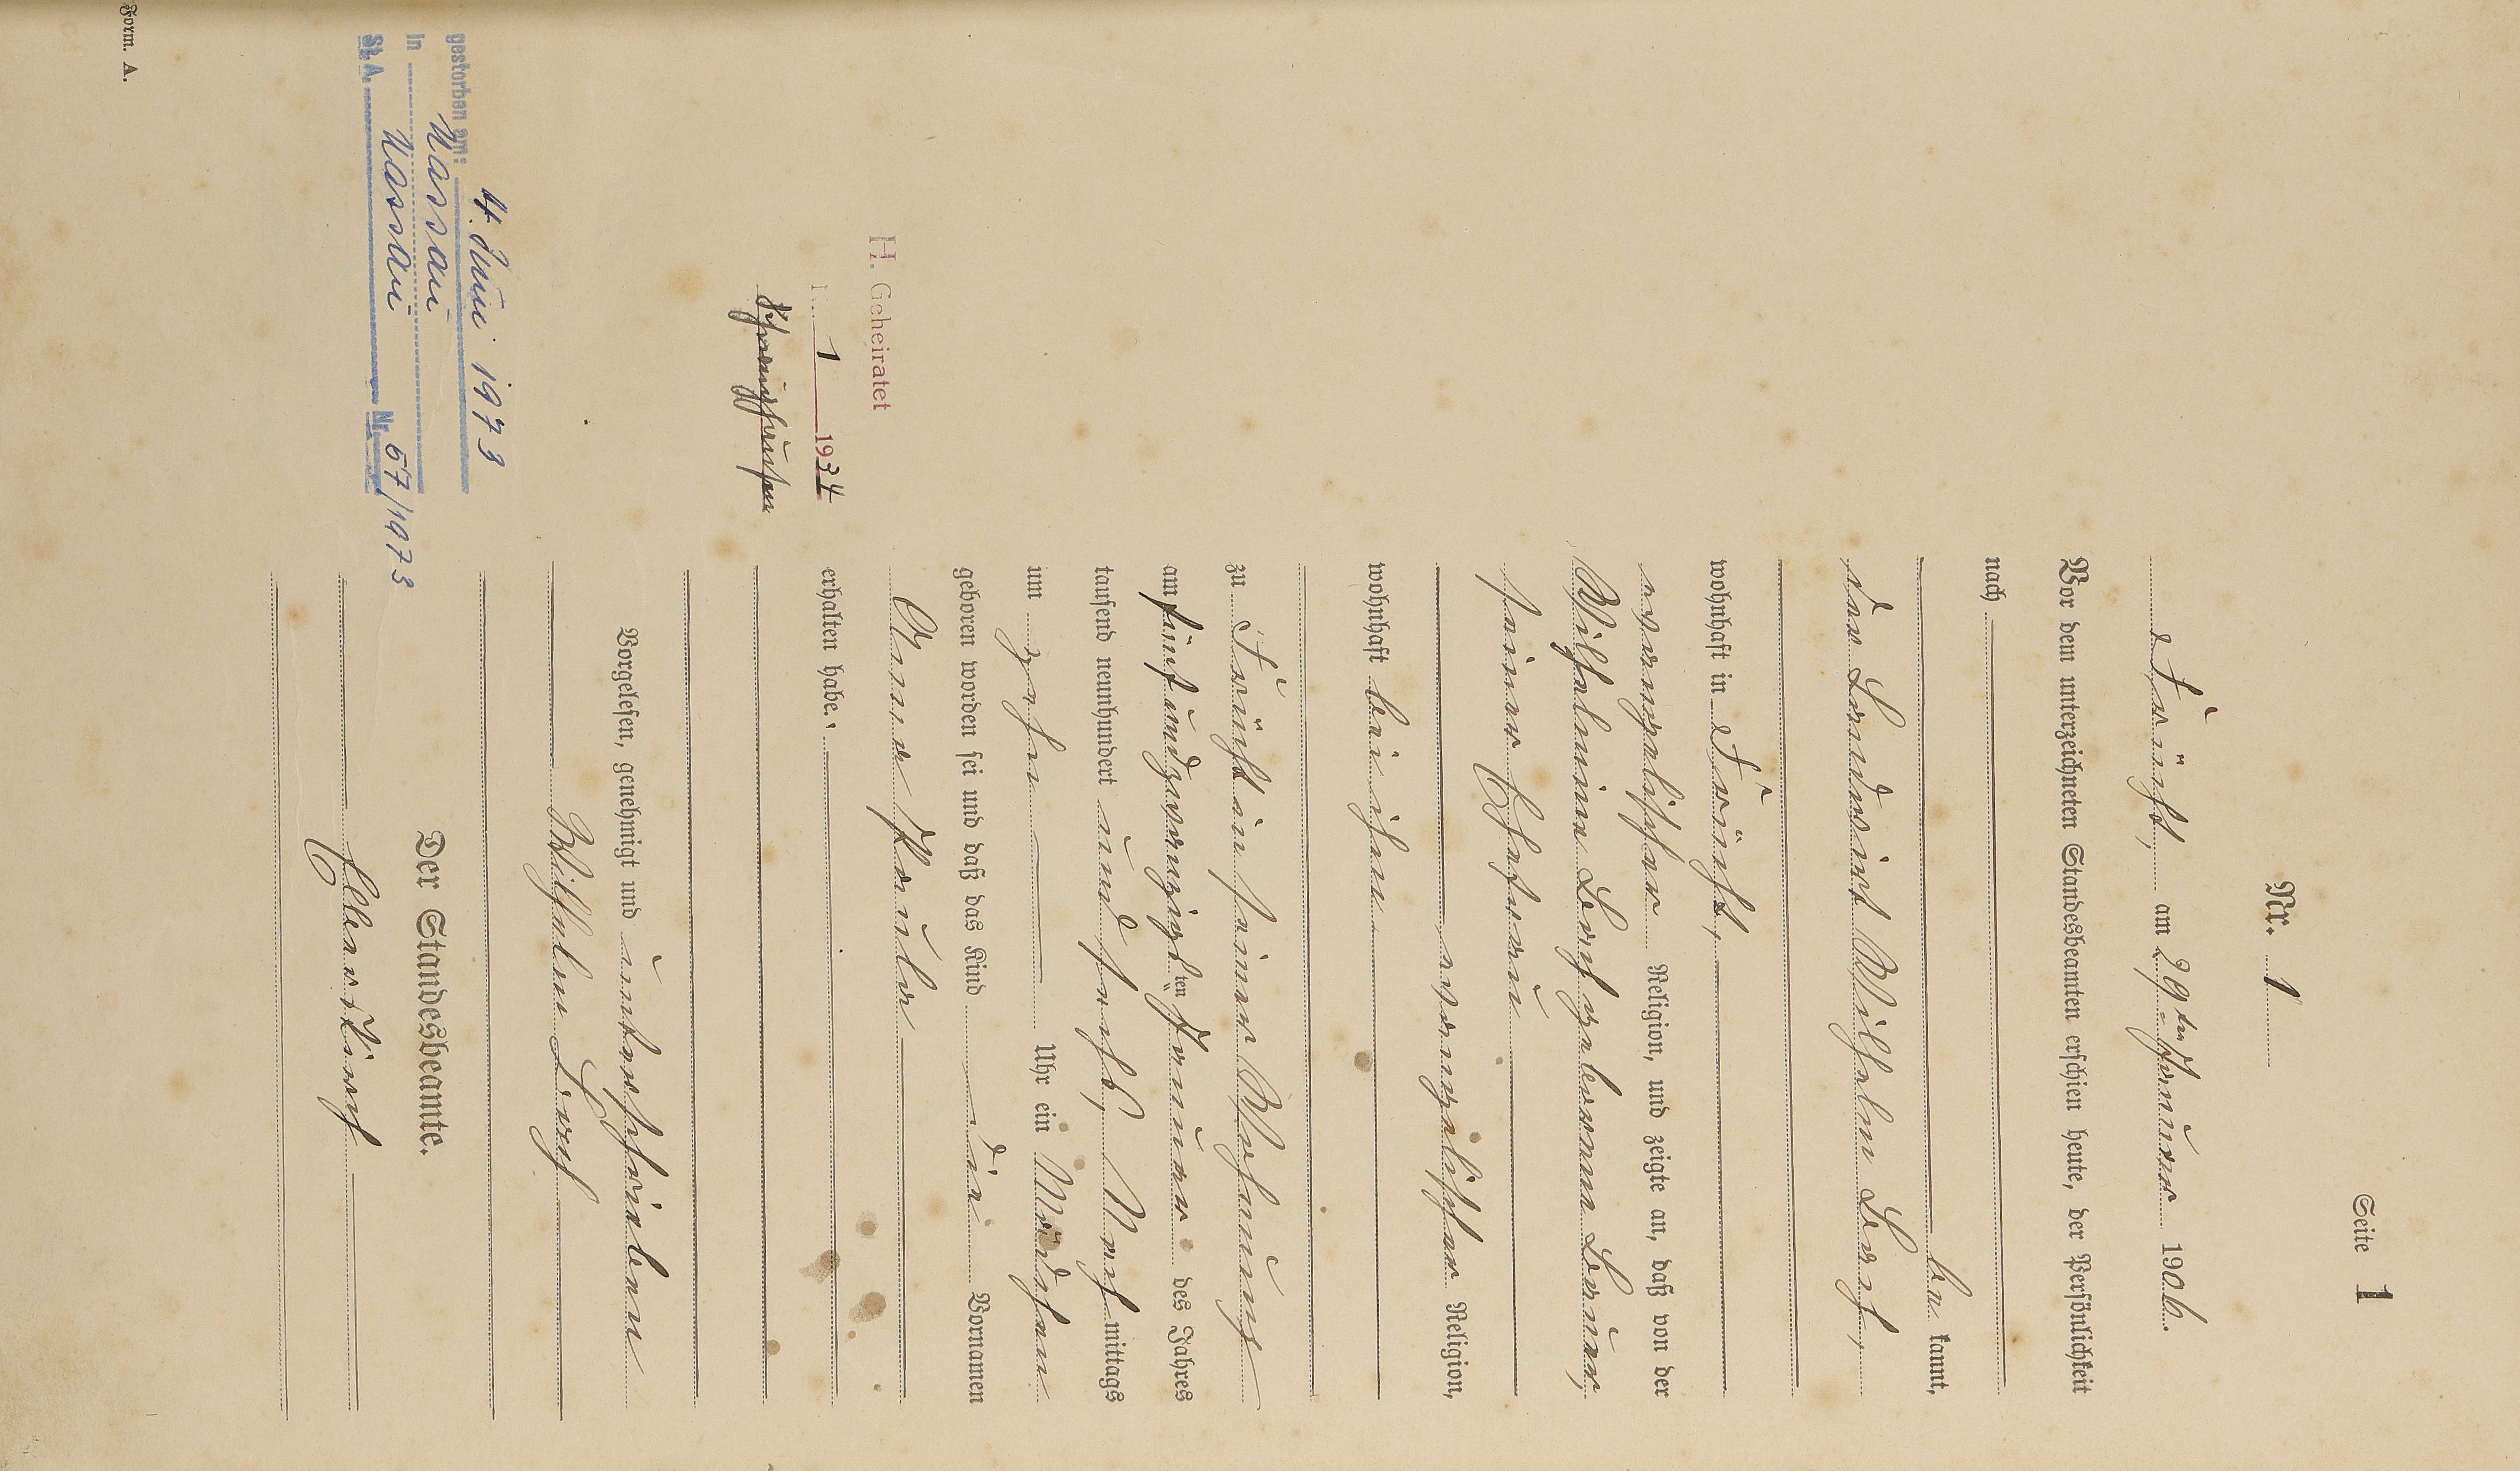 Seite 1
Nr. 1
Frücht, am 29ten Januar 1906.
Vor dem unterzeichneten Standesbeamten erschien heute, der Persönlichkeit
nach
be kannt,
der Landwirt Wilhelm
wohnhaft in Frücht,
evangelischer Religion, und zeigte an, daß von der
Wilhelmine geborenen
seiner Ehefrau
evangelischer Religion,
wohnhaft bei ihm
zu Frücht in seiner Wohnung
am fünfundzwanzigsten Januar des Jahres
tausend neunhundert und sechs, Nachmittags
um zehn Uhr ein Mädchen
geboren worden sei und daß das Kind die Vornamen
Anna Paula
erhalten habe.
Vorgelesen, genehmigt und unterschrieben
Wilhelm
Der Standesbeamte.
H. Geheiratet
N. 1 1934
Schweighausen
gestorben am: 4. Juni 1973
in Nassau
St. A. Nassau Nr. 57/1973
Form. A.